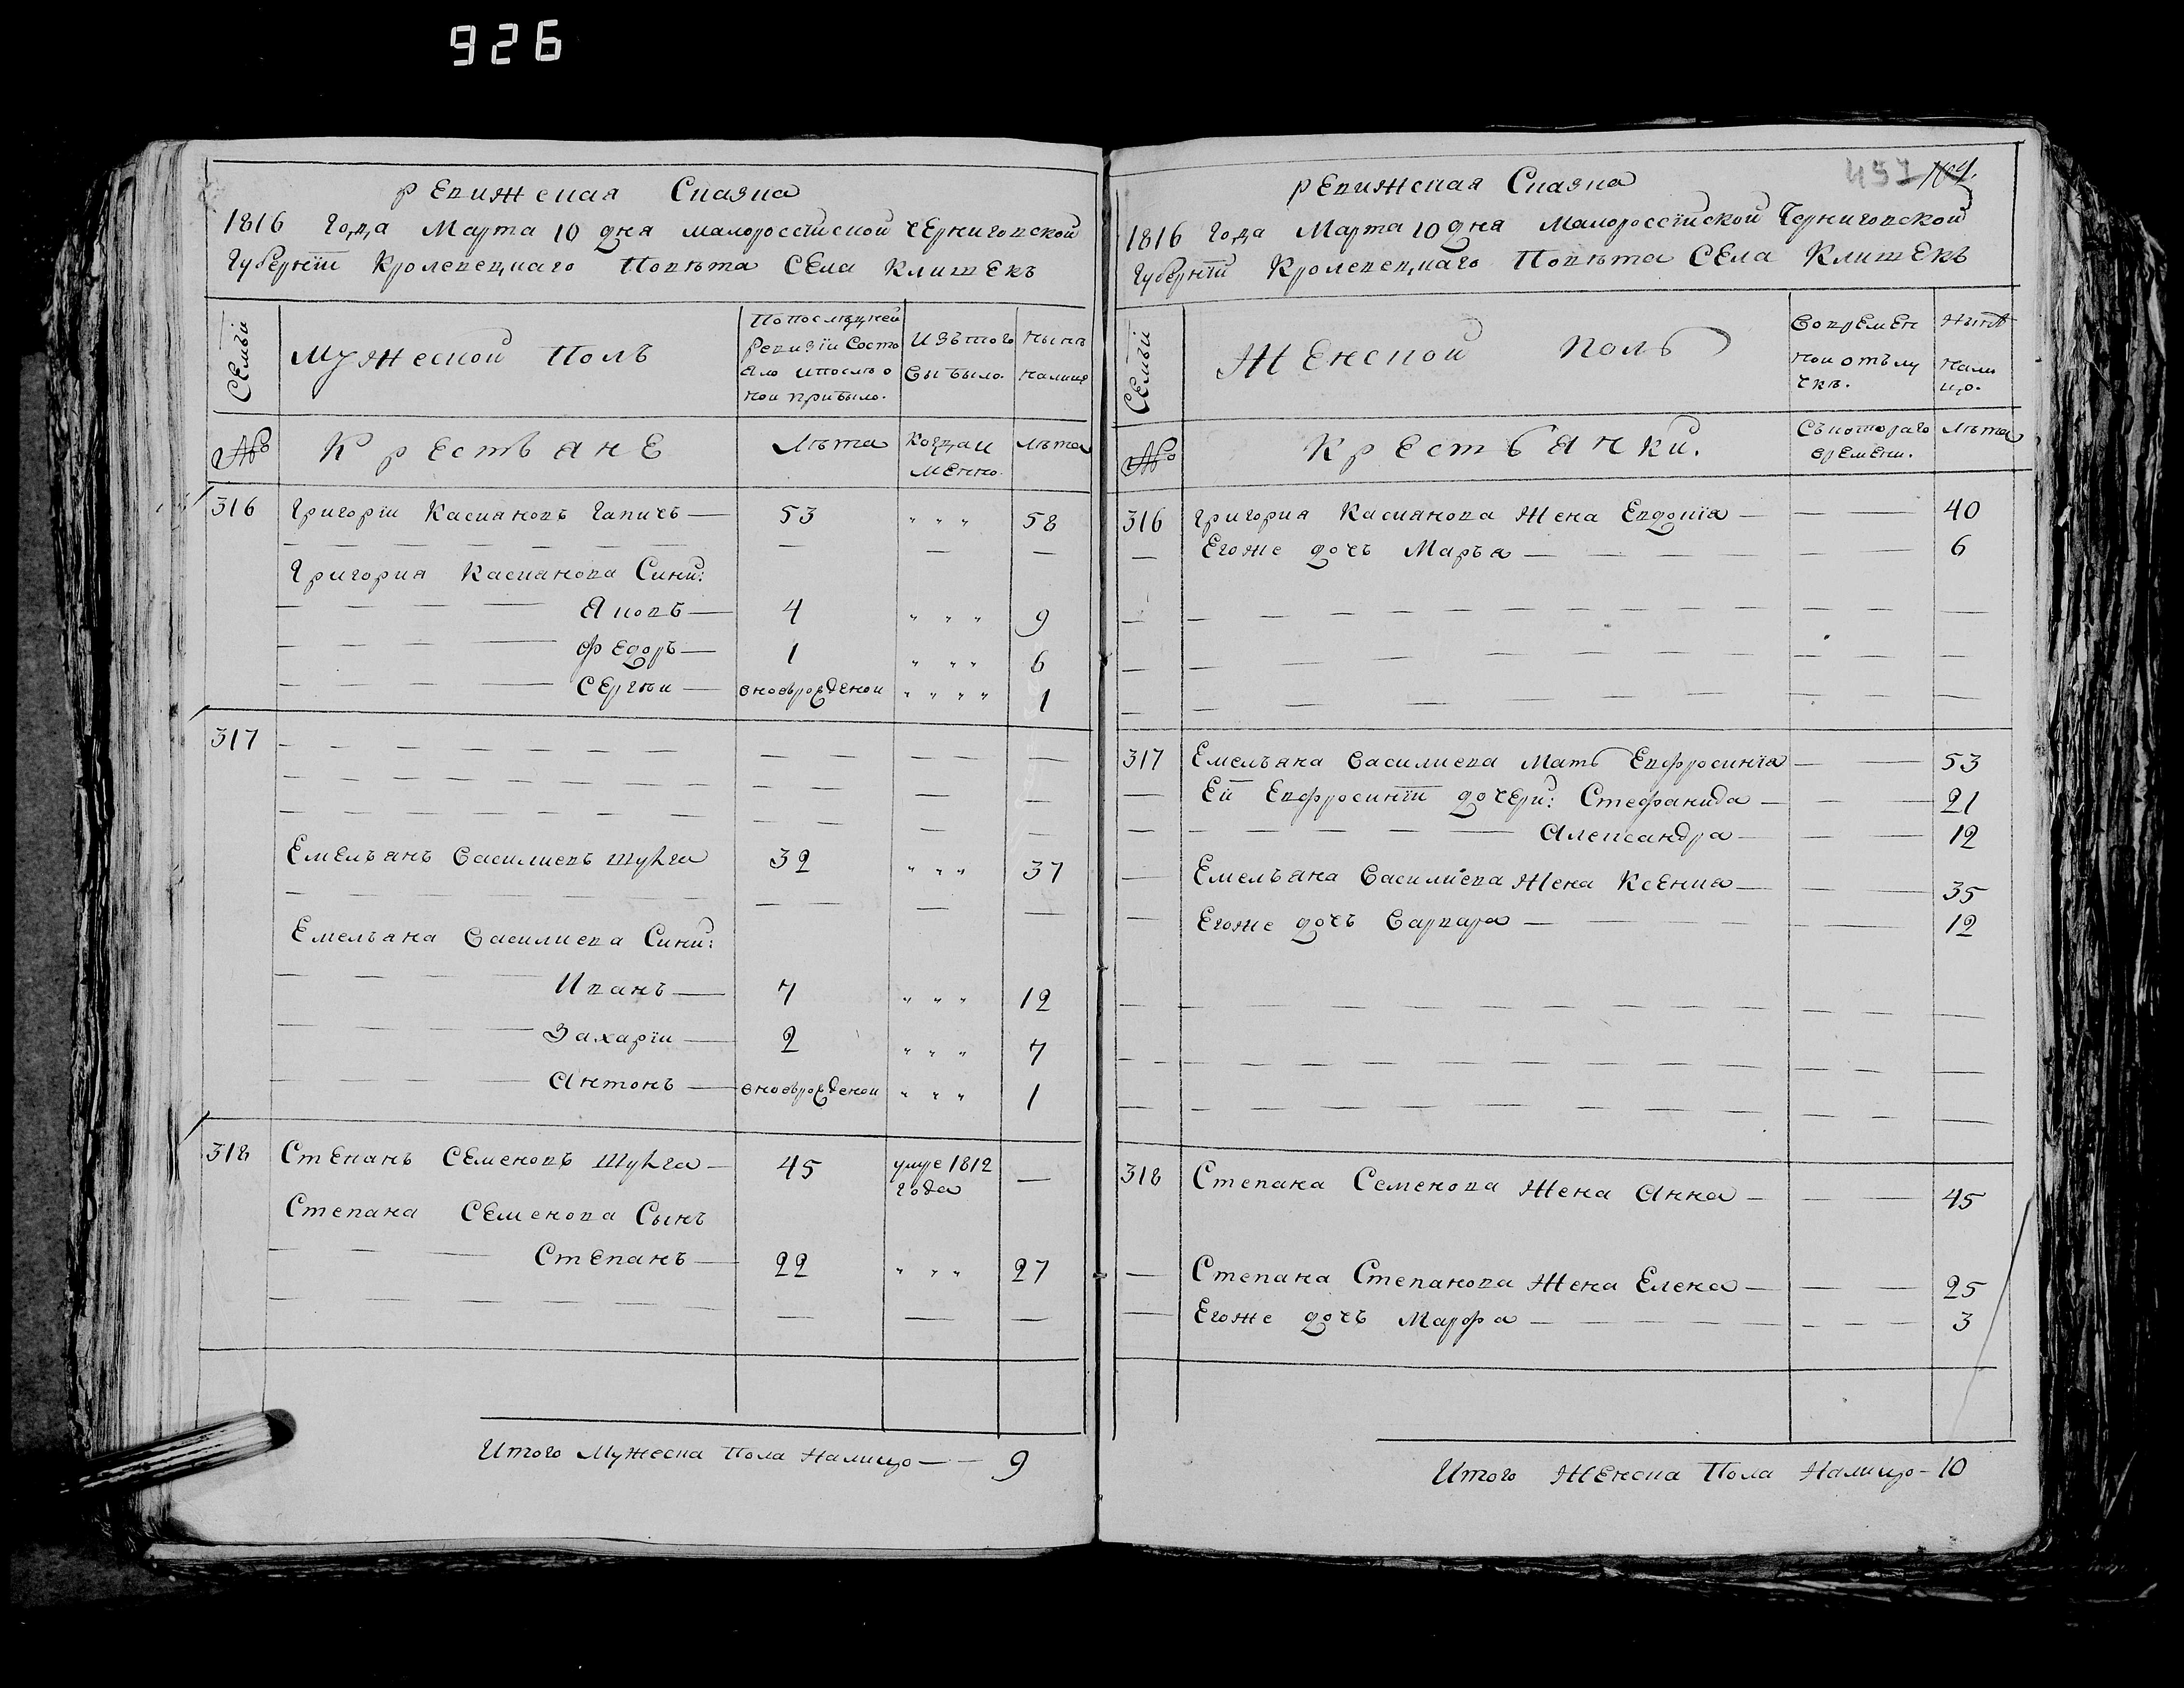 926
Ревижская Сказка
1816 Года Марта 10 дня малороссійской Черниговской
Губерніи Кролевецкаго Повѣта Села Клишекъ
Семьи
Мужеской Полъ
По последней
Ревизіи Состо
яло и после о
ной прибыло.
Изъ того
выбыло.
Нынѣ
налицо
№
Крестьяне
Лѣта
Когда и
менно.
Лѣта
316 Григоріи Касияновъ Гапичъ — 53 " " " 58
Григория Касиянова Сини:
Яковъ — 4 " " " 9
Федоръ — 1 " " " 6
Сергѣи — вноврожденой " " " " 1
317
Емельянъ Василиевъ Шуляга 32 " " " 37
Емельяна Василиева Сини:
Иванъ — 7 " " " 12
Захаріи — 2 " " " 7
Антонъ — вноврожденой " " " 1
318 Степанъ Семеновъ Шуляга — 45 умре 1812
года —
Степана Семенова Сынъ
Степанъ — 22 " " " 27
Итого Мужеска Пола Налицо — 9
457 
Ревижская Сказка
1816 Года Марта 10 дня Малороссійской Черниговской
Губерніи Кролевецкаго Повѣта Села Клишекъ
Семьи
Женской полъ
Вовремен
ной отълу
чкѣ.
Нынѣ
нали
цо.
№
Крестьянки.
Съкотораго
времени.
Лѣта
316 Григория Касиянова Жена Евдокіа — — — 40
Егоже дочъ Маръа — 6
317 Емельяна Василиева Мать Евфросиніа — — 53
Еи Евфросиніи дочери: Стефанида — 21
Александра — 12
Емельяна Василиева Жена Ксениа — 35
Егоже дочъ Варвара — 12
318 Степана Семенова Жена Анна — 45
Степана Степанова Жена Елена — 25
Егоже дочъ Марфа — 3
Итого Женска Пола Налицо — 10